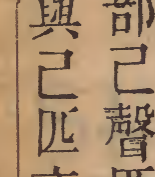 部己聲
與己匹